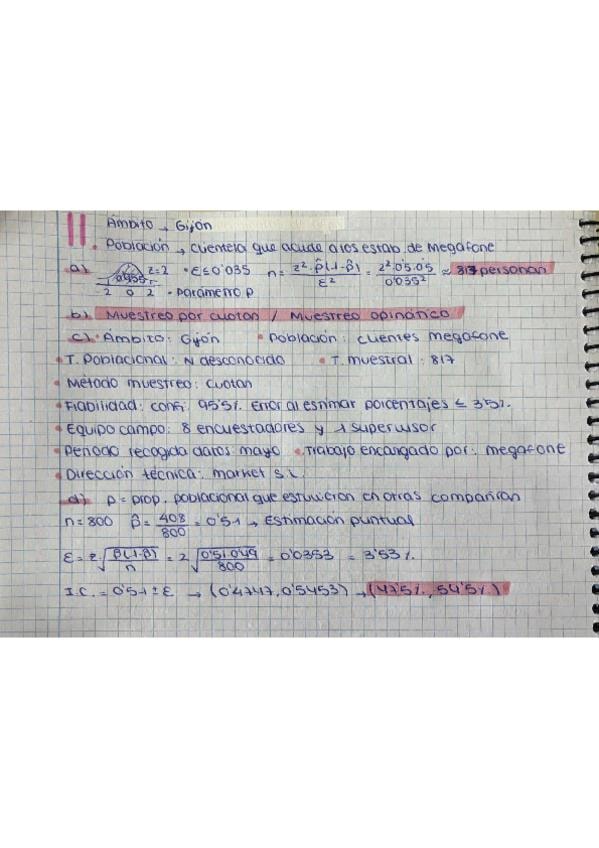 11 Ámbito → Gijón
• Población → clientela que acude a los estab. de Megafone
a) 0'955 z=2 • ε≤0'035 n = z²·p̂(1-p̂)/ε² = 2²·0'5·0'5/0'035² ≈ 817 personas
2 0 2 • Parámetro p
b) Muestreo por cuotas / Muestreo opinático
c) • Ámbito: Gijón • Población: clientes megafone
• T. Poblacional: N desconocido • T. muestral: 817
• Método muestreo: cuotas
• Fiabilidad: conf: 95'5%. Error al estimar porcentajes ≤ 3'5%.
• Equipo campo: 8 encuestadores y 1 supervisor
• Periodo recogida datos: mayo • Trabajo encargado por: megafone
• Dirección técnica: market S.L.
d) p = prop. poblacional que estuvieron en otras compañías
n=800 p̂ = 408/800 = 0'51 → Estimación puntual
ε = z·√(p̂(1-p̂)/n) = 2 √(0'51·0'49/800) = 0'0353 = 3'53%.
I.C. = 0'51 ± ε → (0'4747, 0'5453) → (47'5%, 54'5%)